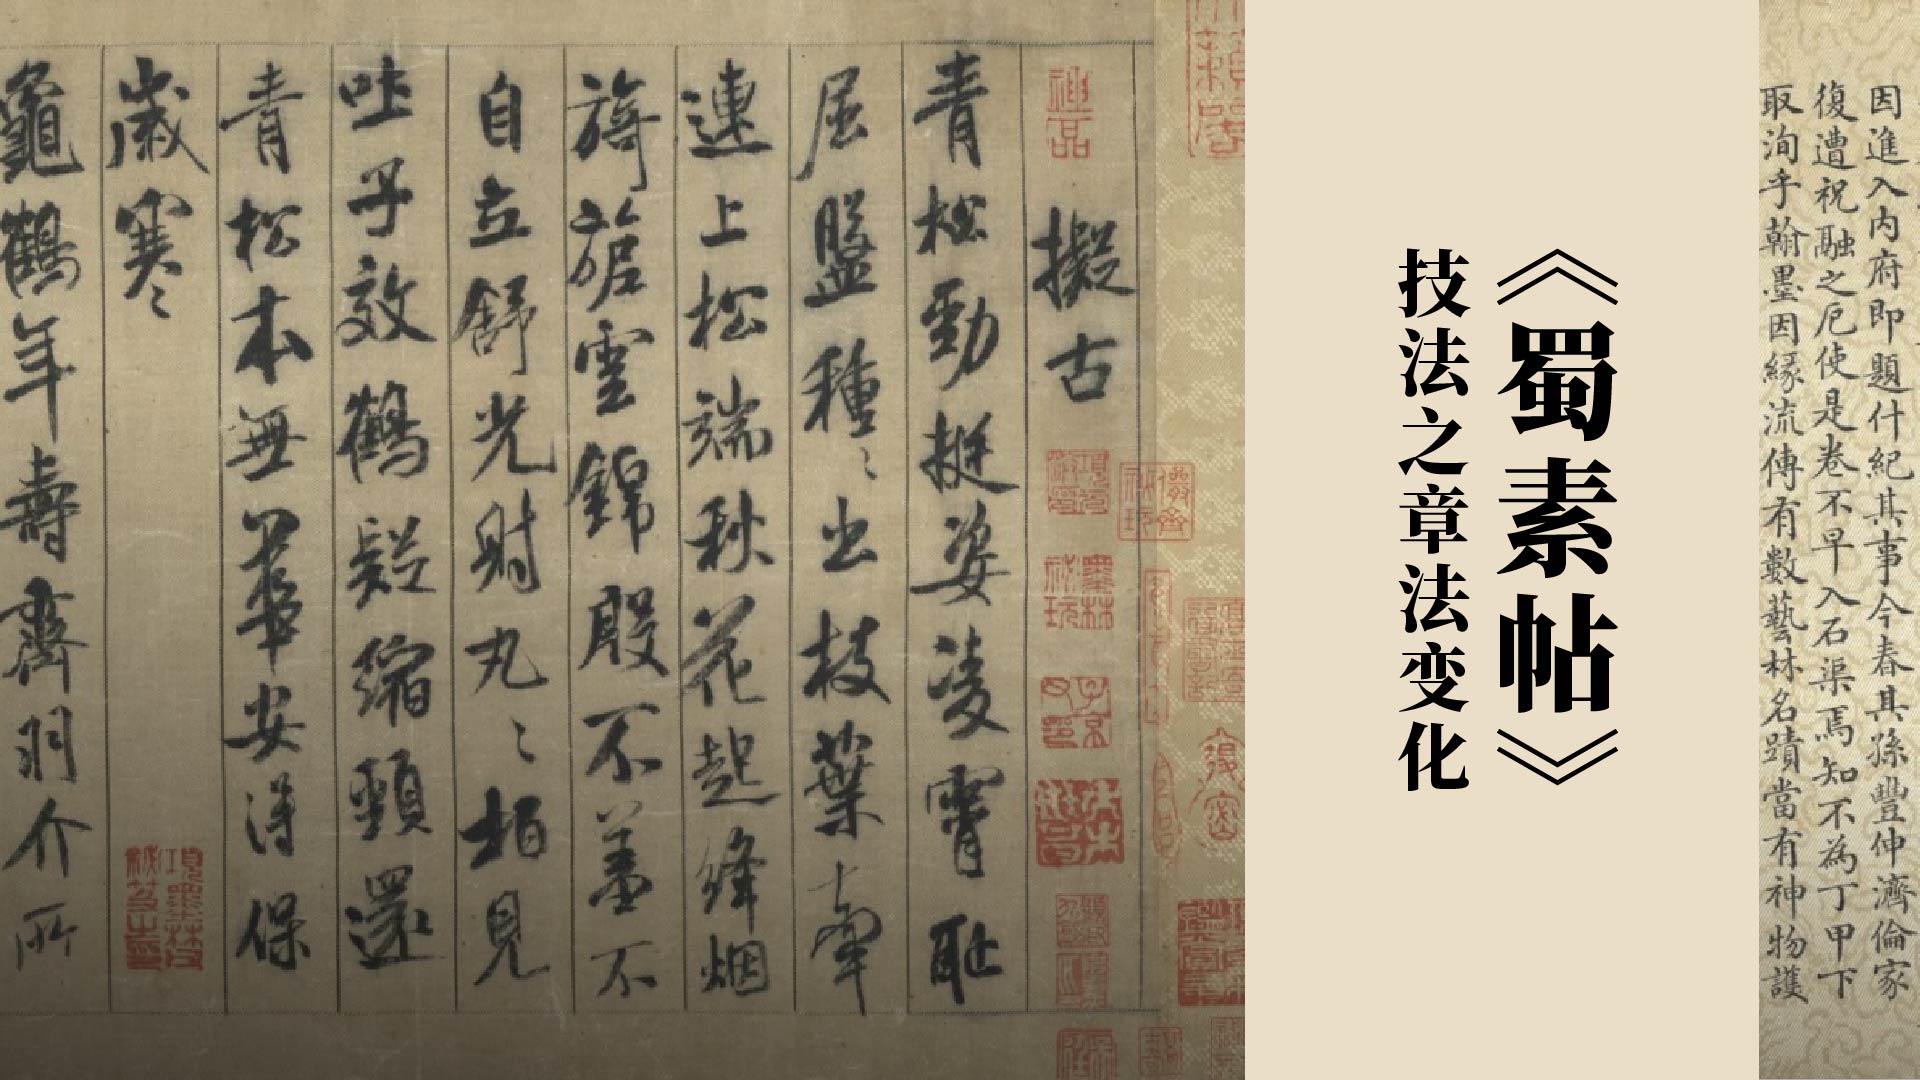 《蜀素帖》
技法之章法变化
擬古
青松勁挺姿凌霄恥
屈盤種〻出枝葉牽
連上松端秋花起絳烟
旖旎雲錦殷不羞不
自立舒光射丸〻柏見
吐子效鶴疑縮頸還
青松本無華安得保
歲寒〻
龜鶴年壽齊羽介所
因進入内府即題什紀其事今春其孫豐伸濟倫家
復遭祝融之厄使是卷不早入石渠焉知不為丁甲下
取洵乎翰墨因緣流傳有數藝林名蹟當有神物護